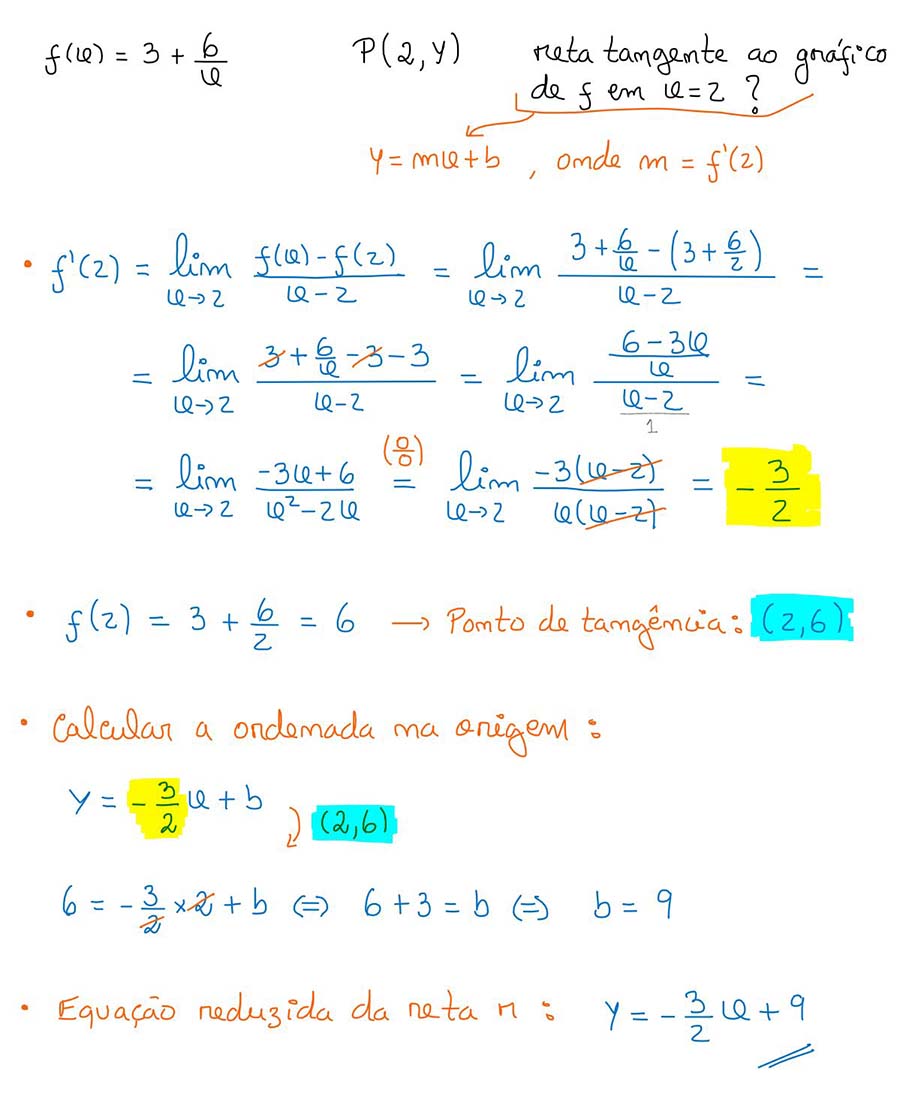 f(x) = 3 + 6/x P(2, y) reta tangente ao gráfico
de f em x = 2 ?
y = mx + b , onde m = f'(2)
• f'(2) = lim x→2 (f(x) - f(2))/(x - 2) = lim x→2 (3 + 6/x - (3 + 6/2))/(x - 2) =
= lim x→2 (3 + 6/x - 3 - 3)/(x - 2) = lim x→2 ((6 - 3x)/x)/((x - 2)/1) =
= lim x→2 (-3x + 6)/(x² - 2x) (0/0) = lim x→2 (-3(x - 2))/(x(x - 2)) = -3/2
• f(2) = 3 + 6/2 = 6 → Ponto de tangência: (2,6)
• Calcular a ordenada na origem :
y = -3/2 x + b (2,6)
6 = -3/2 × 2 + b ⇔ 6 + 3 = b ⇔ b = 9
• Equação reduzida da reta r : y = -3/2 x + 9